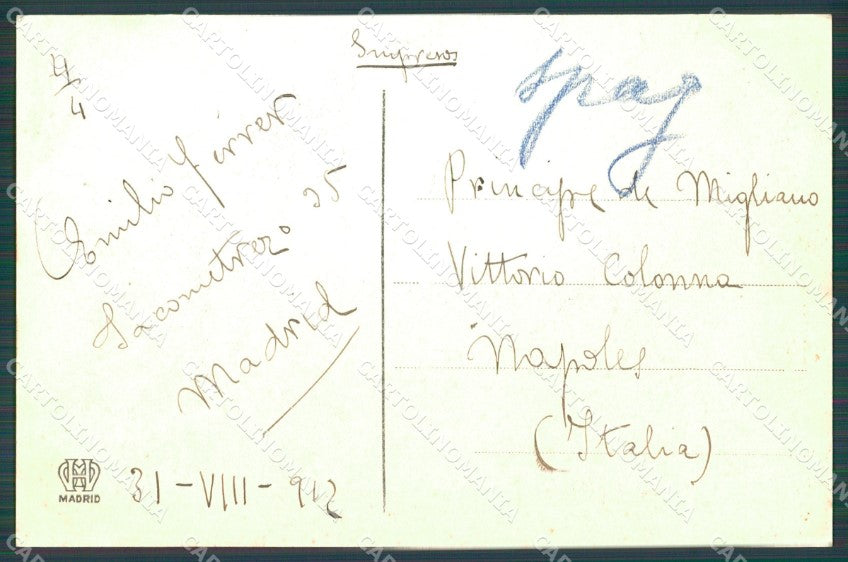 4/4
Impresos
spag
Emilio Ferrer
Jacometrezo 35
Madrid
31-VIII-912
MADRID
Principe de Migliano
Vittorio Colonna
Napoles
(Italia)
CARTOLINOMANIA